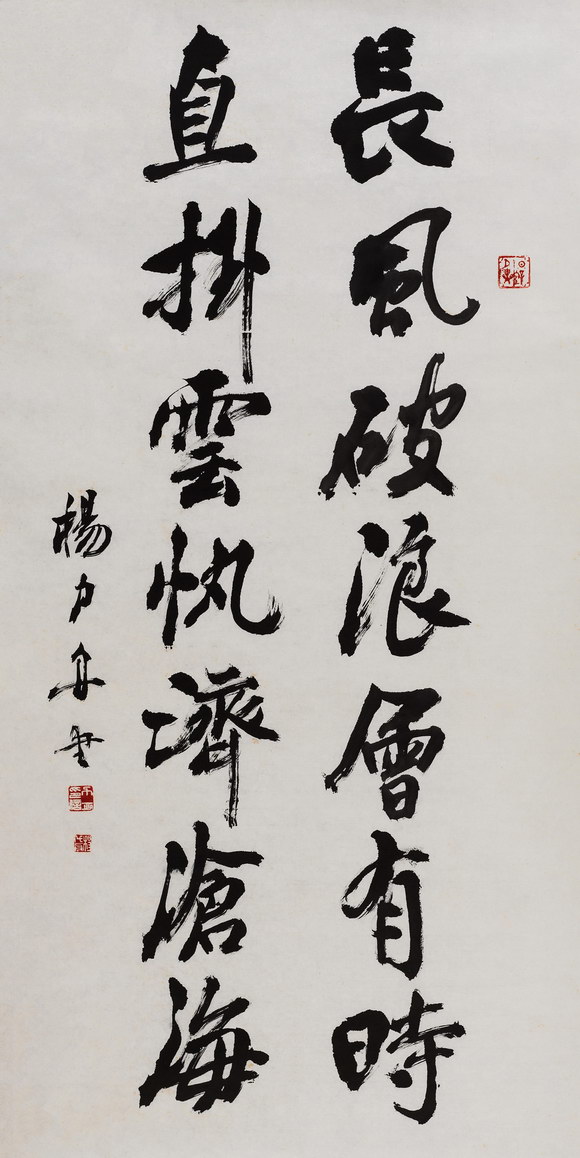 長風破浪會有時
直掛雲帆濟滄海
楊力舟書